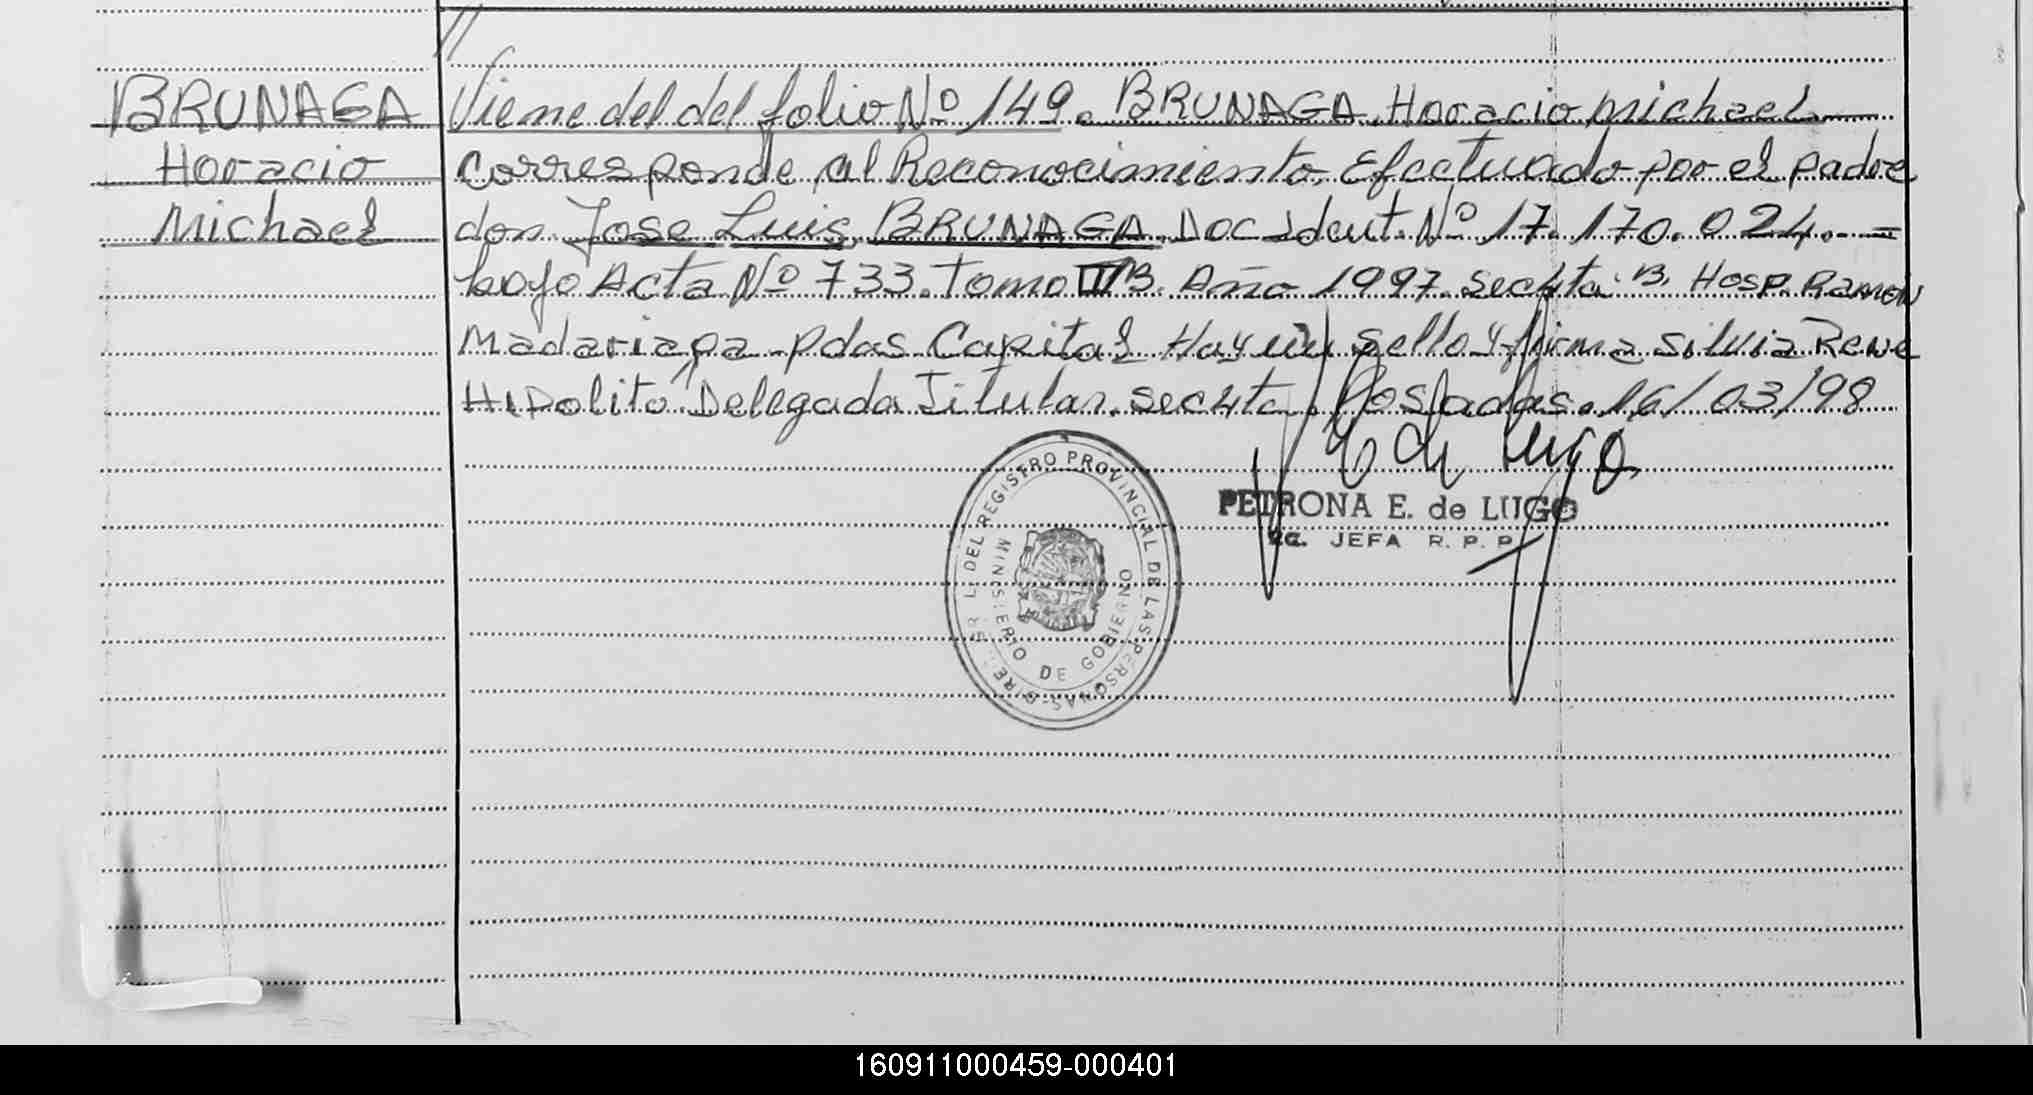 //
BRUNAGA
Horacio
Michael
Viene del del folio Nº 149. BRUNAGA, Horacio Michael
corresponde al Reconocimiento, Efectuado por el padre
don Jose Luis BRUNAGA Doc Ident. Nº 17.170.024.-
bajo Acta Nº 733. Tomo III B. Año 1997. Seccta. B. Hosp. Ramon
Madariaga - Pdas Capital Hay un sello y firma Silvia Rene
Hipolito, Delegada Titular. Seccta. Posadas. 16/03/98
PETRONA E. de LUGO
JEFA R. P. P.
DEL REGISTRO PROVINCIAL DE LAS PERSONAS
MINISTERIO DE GOBIERNO
160911000459-000401